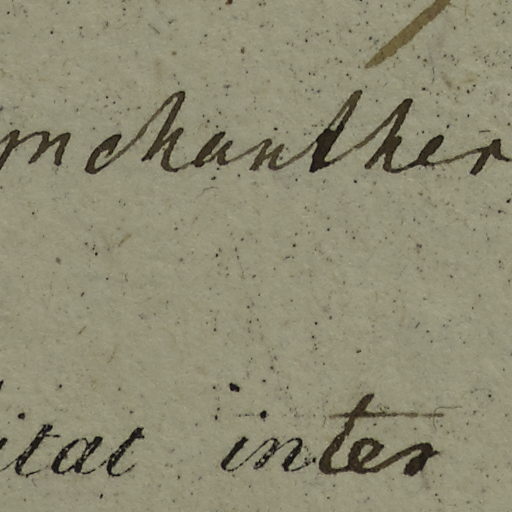 nchanther
itat inter